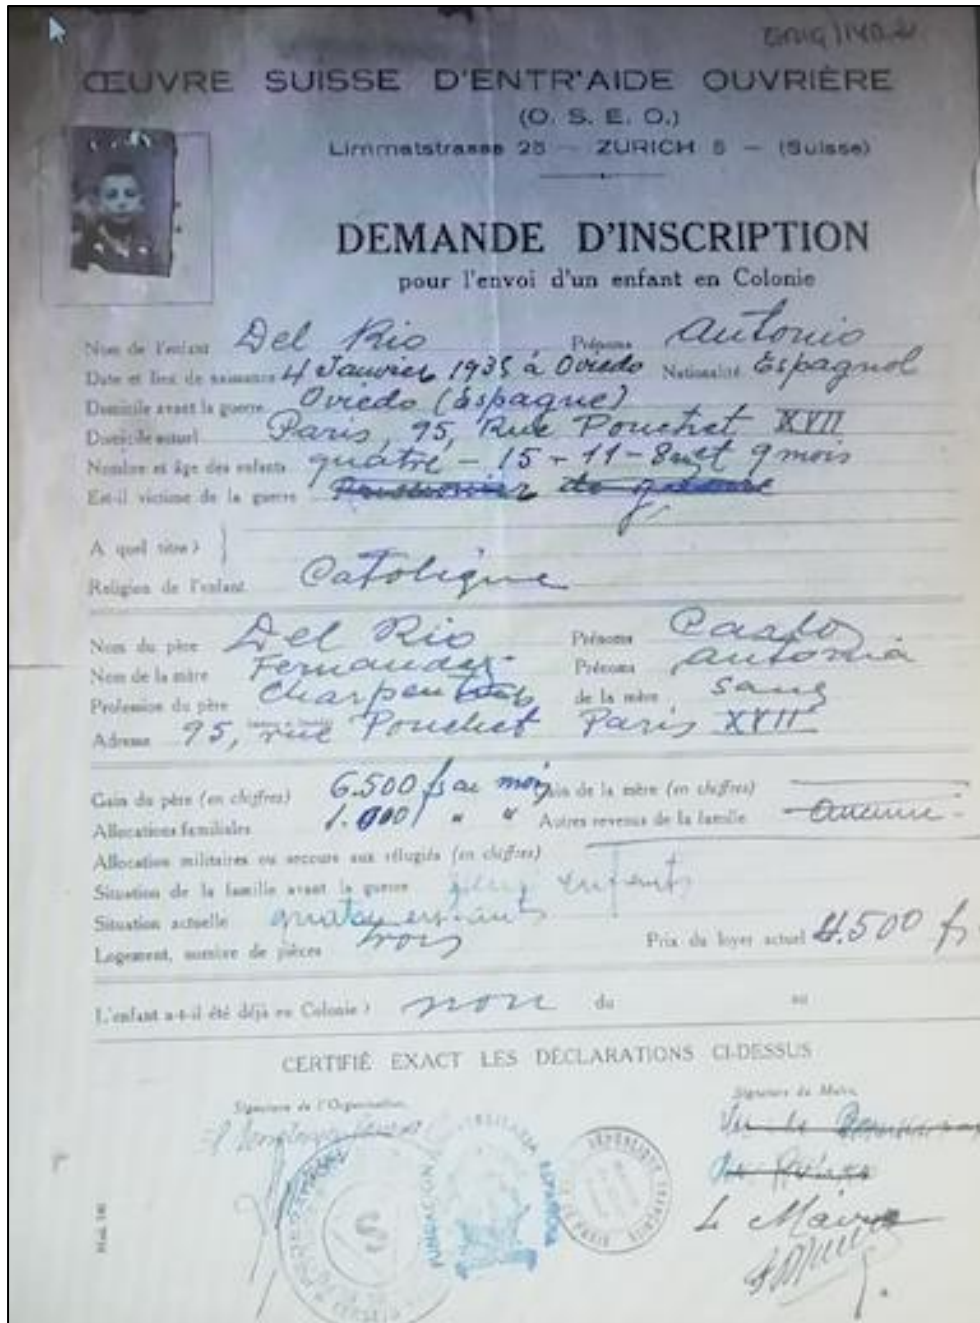 ŒUVRE SUISSE D'ENTR'AIDE OUVRIÈRE
(O. S. E. O.)
Limmatstrasse 28 — ZURICH 5 — (Suisse)
DEMANDE D'INSCRIPTION
pour l'envoi d'un enfant en Colonie
Nom de l'enfant Del Rio Prénoms Antonio
Date et lieu de naissance 4 Janvier 1935 à Oviedo Nationalité Espagnol
Domicile avant la guerre Oviedo (Espagne)
Domicile actuel Paris, 95, Rue Pouchet XVII
Nombre et âge des enfants quatre - 15 - 11 - 8 et 9 mois
Est-il victime de la guerre Prisonnier de guerre
A quel titre ?
Religion de l'enfant Catolique
Nom du père Del Rio Prénoms
Nom de la mère Fernandez Prénoms Antonia
Profession du père Charpentier de la mère sans
Adresse 95, rue Pouchet Paris XVII
Gain du père (en chiffres) 6.500 fs au mois Gain de la mère (en chiffres)
Allocations familiales 1.000 " " Autres revenus de la famille Aucun
Allocation militaires ou secours aux réfugiés (en chiffres)
Situation de la famille avant la guerre enfants
Situation actuelle quatre enfants
Logement, nombre de pièces trois Prix du loyer actuel 4.500 fs
L'enfant a-t-il été déjà en Colonie ? non du au
CERTIFIÉ EXACT LES DÉCLARATIONS CI-DESSUS
Signature de l'Organisation, Signature du Maire,
Le Maire
RÉPUBLIQUE FRANÇAISE